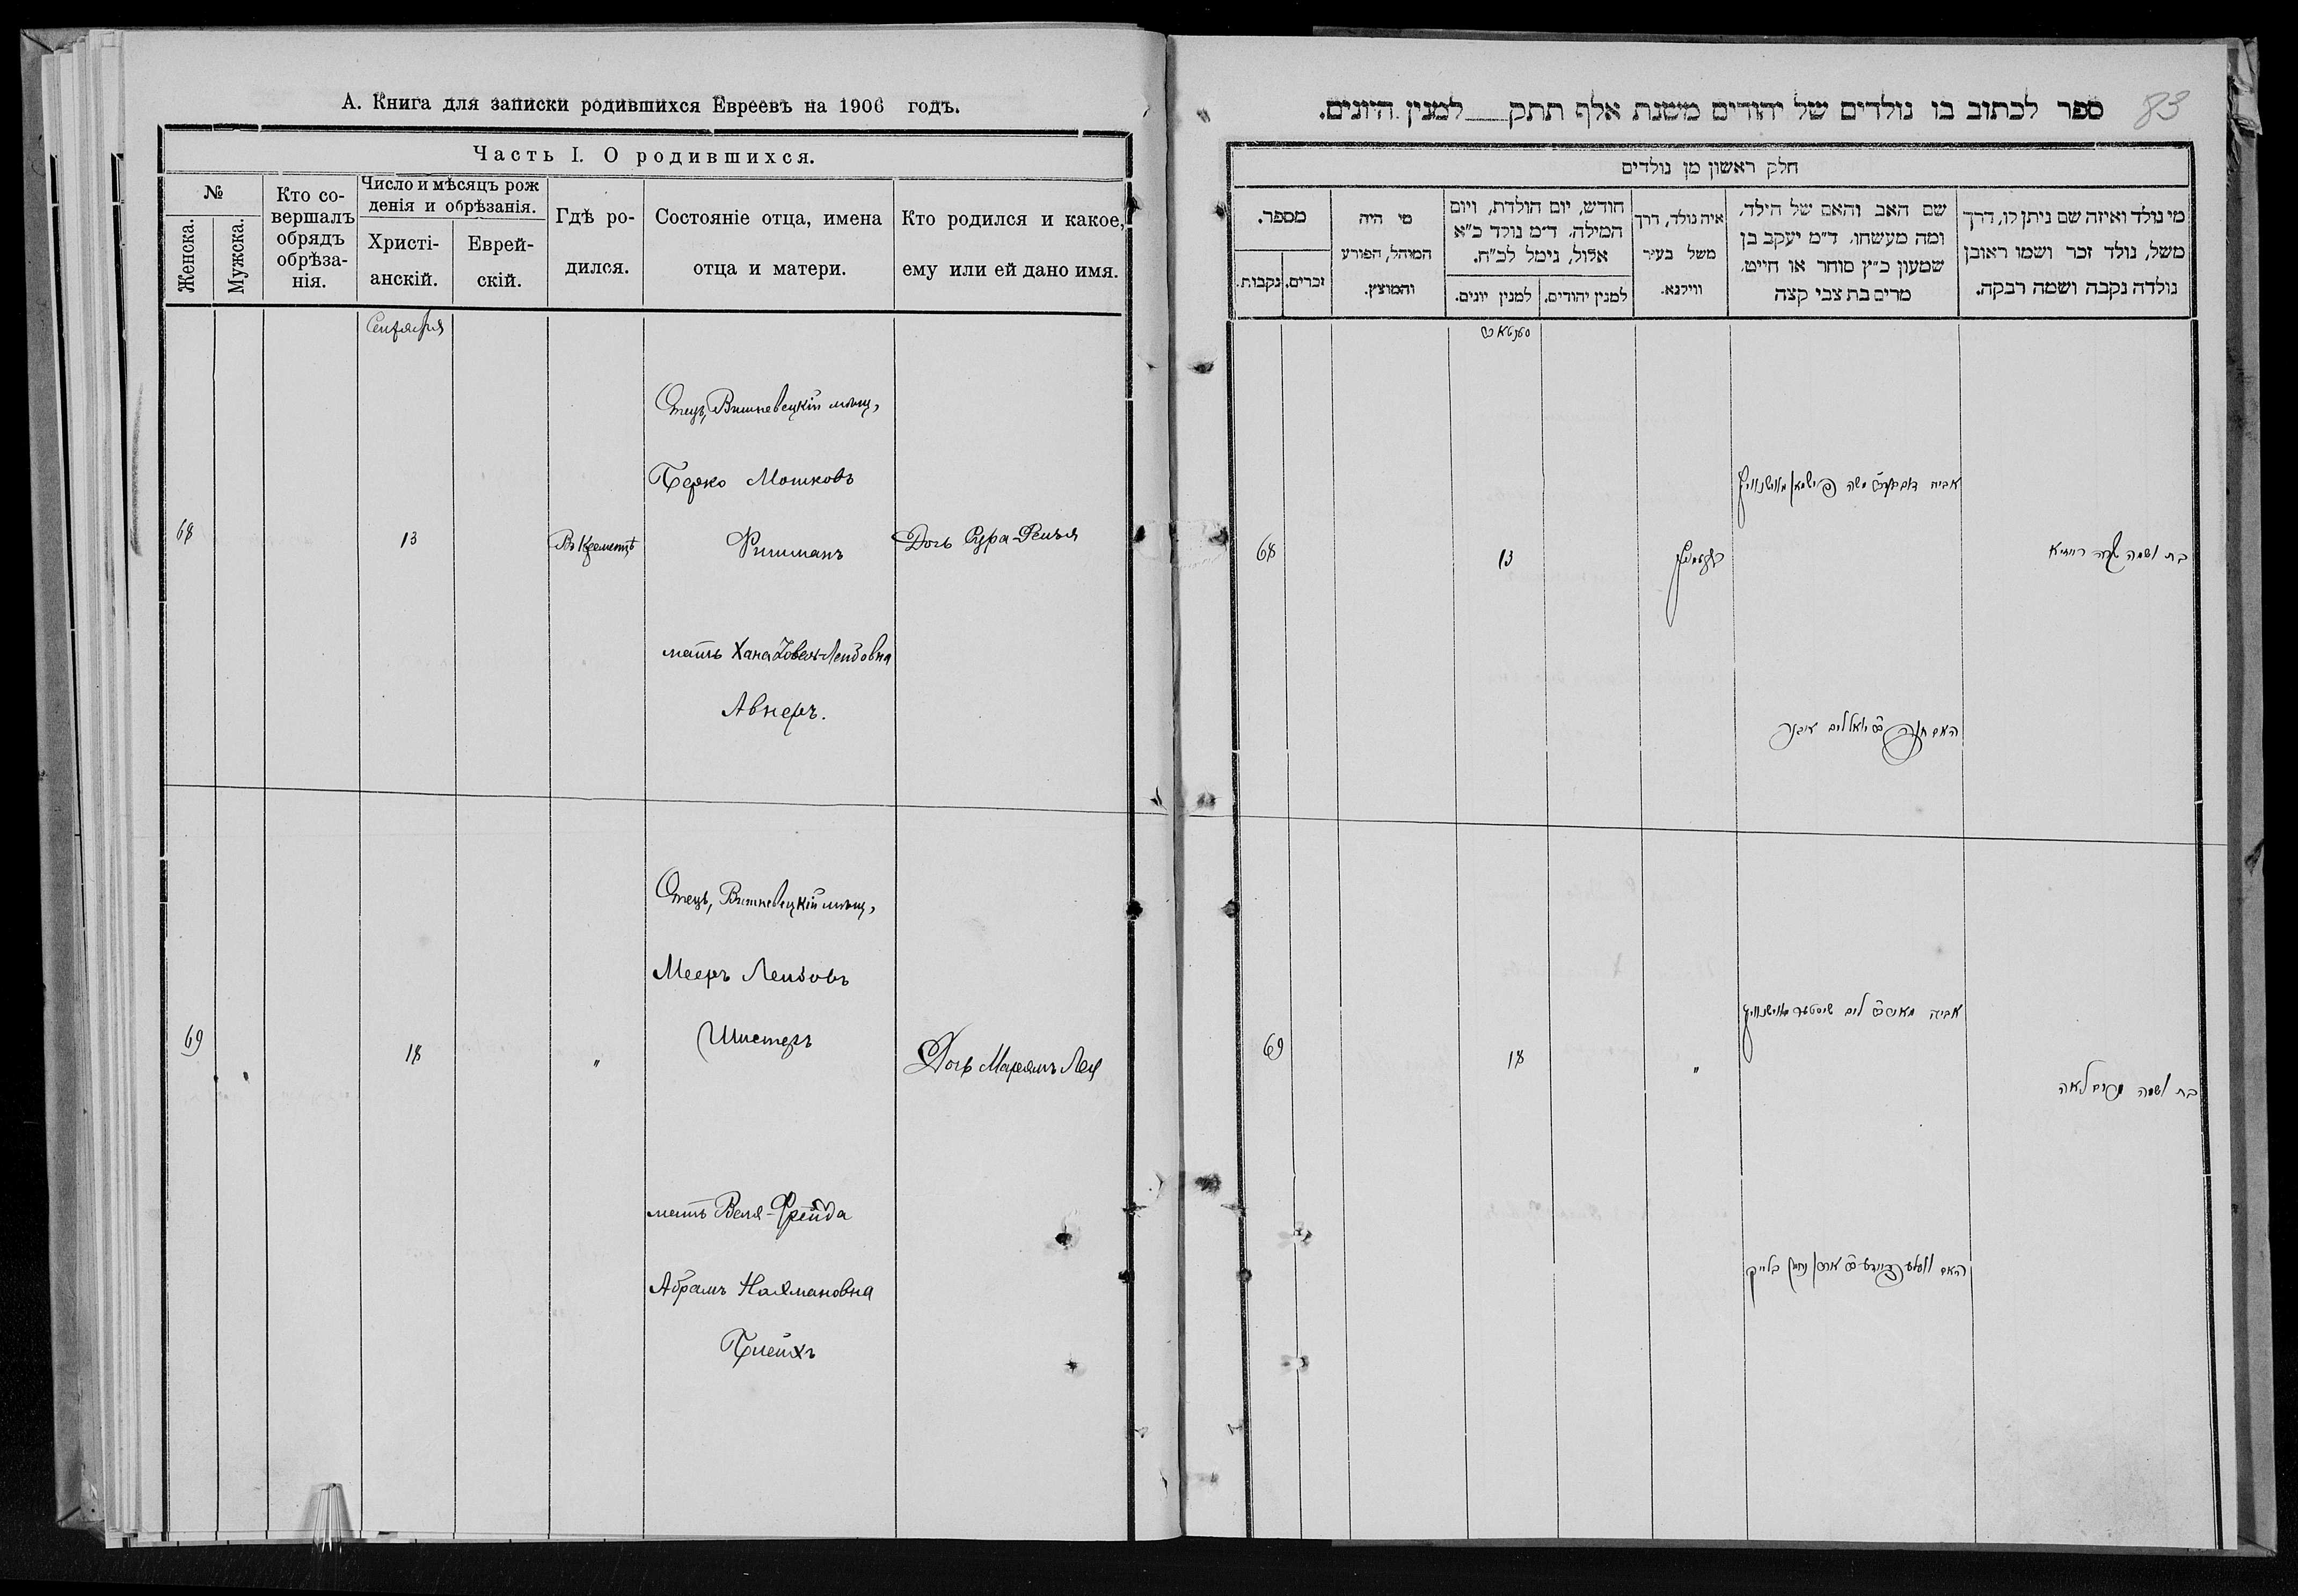 А. Книга для записки родившихся Евреевъ на 1906 годъ.
Часть I. О родившихся.
№
Женска.
Мужска.
Кто со-
вершалъ
обрядъ
обрѣза-
нія.
Число и мѣсяцъ рож
денія и обрѣзанія.
Христі-
анскій.
Еврей-
скій.
Гдѣ ро-
дился.
Состояніе отца, имена
отца и матери.
Кто родился и какое,
ему или ей дано имя.
Сентября
68
13
Въ Кременцѣ
Отецъ, Вишневецкій мѣщ,
Берко Мошковъ
Ришманъ
мать Хана Іовель-Лейбовна
Авнеръ.
Дочь Сура-Рейзя
69
18
"
Отецъ, Вишневецкій мѣщ,
Мееръ Лейбовъ
Шистеръ
мать Веля-Фрейда
Абрамъ Нахмановна
Блейхъ
Дочь Марьямъ Лея
83
ספר לכתוב בו נולדים של יהודים משנת אלף תתק למנין היונים.
חלק ראשון מן נולדים
מי נולד ואיזה שם ניתן לו, דרך
משל, נולד זכר ושמו ראובן
נולדה נקבה ושמה רבקה.
שם האב והאם של הילד,
ומה מעשהו. ד״מ יעקב בן
שמעון כ״ץ סוחר או חייט,
מרים בת צבי קצה
איה נולד, דרך
משל בעיר
ווילנא.
חודש, יום הולדת, ויום
המילה. ד״מ נולד כ״א
אלול, נימל לכ״ח.
למנין יהודים.
למנין יונים.
מי היה
המוהל, הפורע
והמוצץ.
מספר.
זכרים.
נקבות.
68
13
בת ושמה שרה רייזיא
69
18
"
אביה מאיר ב״ר ליב שיסטער מווישנוויץ
בת ושמה מרים לאה